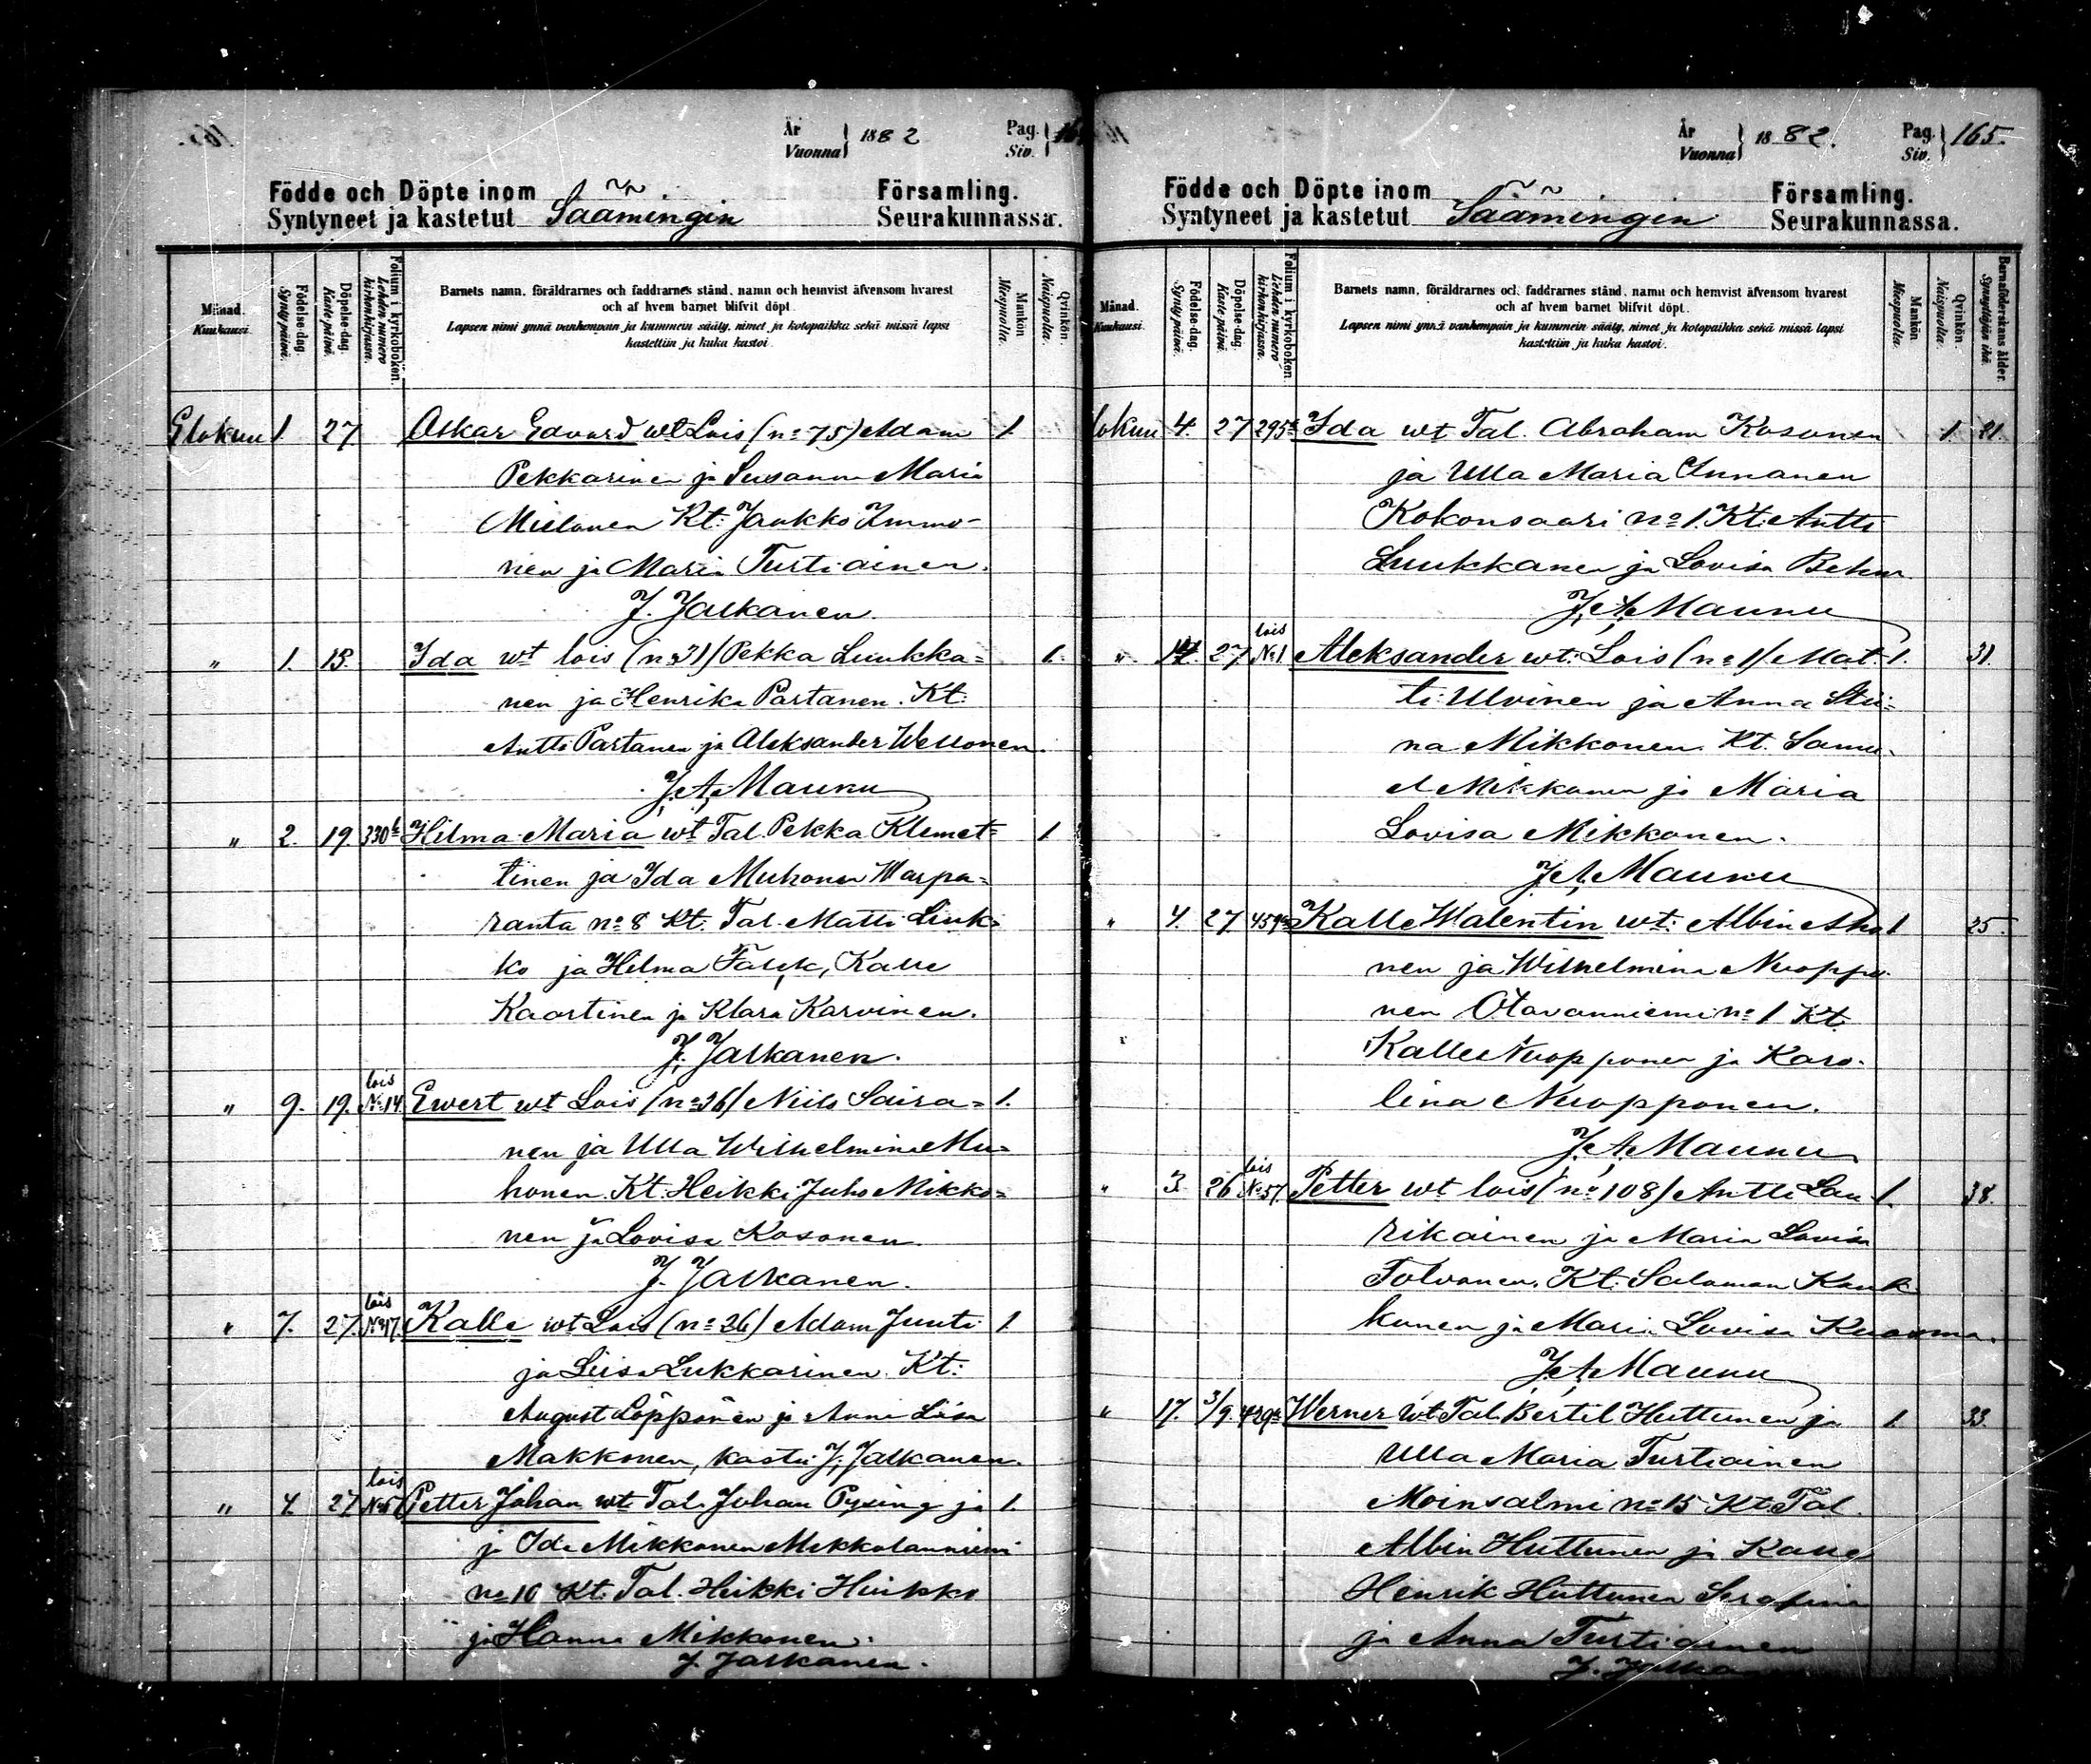 År
Vuonna } 1882
Pag.
Siv. } 164
Födde och Döpte inom
Syntyneet ja kastetut Säämingin
Församling.
Seurakunnassa.
Månad.
Kuukausi.
Födelse-dag.
Synty päivä.
Döpelse-dag.
Kaste päivä.
Folium i kyrkoboken.
Lehden numero
kirkonkirjassa.
Barnets namn, föräldrarnes och faddrarnes stånd, namn och hemvist äfvensom hvarest
och af hvem barnet blifvit döpt.
Lapsen nimi ynnä vanhempain ja kummein sääty, nimet ja kotopaikka sekä missä lapsi
kastettiin ja kuka kastoi.
Mankön
Miespuolia.
Qvinkön.
Naispuolia.
Elokuu 1. 27 Oskar Edvard wt Lois (no 75) Adam 1.
Pekkarinen ja Susanna Maria
Mielonen Kt: Jaakko Immo-
nen ja Maria Turtiainen.
J. Jalkanen.
" 1. 13. Ida wt lois (no 31) Pekka Luukka= 1.
nen ja Henrika Partanen. Kt:
Antti Partanen ja Aleksander Wesonen.
J. A. Maunu
" 2. 19. 330b Hilma Maria wt Tal. Pekka Klemet= 1.
tinen ja Ida Muhonen Warpa=
ranta no 8 Kt: Tal. Matti Liuk=
ko ja Hilma Falck, Kalle
Kaartinen ja Klara Karvinen.
J. Jalkanen.
" 9. 19. lois No 14. Ewert wt Lois (no 26) Niilo Saira= 1.
nen ja Ulla Wilhelmina Mu=
honen. Kt: Heikki Juho Mikko=
nen ja Lovisa Kosonen.
J. Jalkanen.
" 7. 27. lois No 17. Kalle wt Lois (no 26) Adam Juuti 1.
ja Liisa Lukkarinen. Kt:
August Löppönen ja Anna Liisa
Makkonen, kastoi J. Jalkanen.
" 4. 27. lois Petter Johan wt Tal. Johan Pysing ja 1.
ja Ida Mikkonen Mekkalanniemi
no 10 Kt: Tal. Heikki Huikko
ja Hanna Mikkonen.
J. Jalkanen.
År
Vuonna } 1882.
Pag.
Siv. } 165.
Födde och Döpte inom
Syntyneet ja kastetut Säämingin
Församling.
Seurakunnassa.
Månad.
Kuukausi.
Födelse-dag.
Synty päivä.
Döpelse-dag.
Kaste päivä.
Folium i kyrkoboken.
Lehden numero
kirkonkirjassa.
Barnets namn, föräldrarnes och faddrarnes stånd, namn och hemvist äfvensom hvarest
och af hvem barnet blifvit döpt.
Lapsen nimi ynnä vanhempain ja kummein sääty, nimet ja kotopaikka sekä missä lapsi
kastettiin ja kuka kastoi.
Mankön
Miespuolia.
Qvinkön.
Naispuolia.
Barnaföderskans ålder.
Synnyttäjän ikä.
lokuu 4. 27 295b Ida wt Tal. Abraham Kosonen 1. 21.
ja Ulla Maria Innanen
Kokonsaari no 1. Kt: Antti
Luukkanen ja Lovisa Behm
J. A. Maunu
" 14. 27 lois No 1 Aleksander wt: Lois (no 1) Mat= 1. 31.
ti Ulvinen ja Anna Stii=
na Mikkonen. Kt. Samu=
el Mikkonen ja Maria
Lovisa Mikkonen.
J. A. Maunu
" 4. 27 459a Kalle Walentin wt: Albin Aho 1 25.
nen ja Wilhelmina Nuoppo
nen Otavanniemi no 1 Kt.
Kalle Nuopponen ja Karo=
lina Nuopponen.
J. A. Maunu
" 3. 26 lois No 57. Petter wt lois (no 108) Antti Lau 1. 38.
rikainen ja Maria Lovisa
Tolvanen. Kt. Saloman Kauk
konen ja Maria Lovisa Kuosma.
J. A. Maunu
" 17. 3/9. 429a Werner wt Tal. Bertil Huttunen ja 1. 33.
Ulla Maria Turtiainen
Moinsalmi no 15 Kt. Tal.
Albin Huttunen ja Kalle
Henrik Huttunen Serafina
ja Anna Turtiainen
J. Jalka